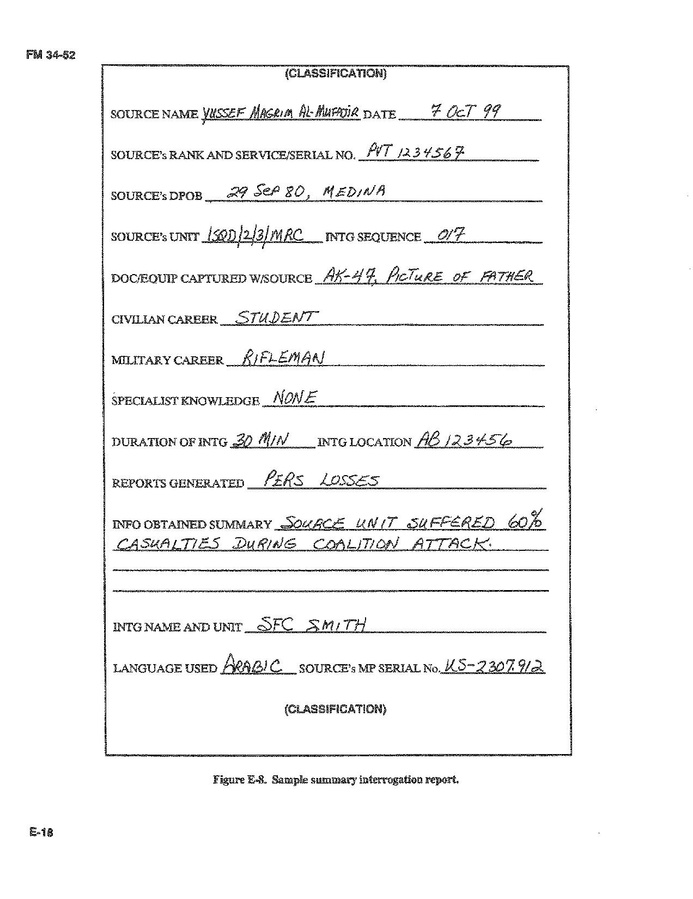 FM 34-52
(CLASSIFICATION)
SOURCE NAME YUSSEF MAGRIM AL-MUFTOIR DATE 7 OCT 99
SOURCE's RANK AND SERVICE/SERIAL NO. PVT 1234567
SOURCE's DPOB 29 SEP 80, MEDINA
SOURCE's UNIT 1SQD/2/3/MRC INTG SEQUENCE 017
DOC/EQUIP CAPTURED W/SOURCE AK-47, PICTURE OF FATHER
CIVILIAN CAREER STUDENT
MILITARY CAREER RIFLEMAN
SPECIALIST KNOWLEDGE NONE
DURATION OF INTG 30 MIN INTG LOCATION AB 123456
REPORTS GENERATED PERS LOSSES
INFO OBTAINED SUMMARY SOURCE UNIT SUFFERED 60%
CASUALTIES DURING COALITION ATTACK.
INTG NAME AND UNIT SFC SMITH
LANGUAGE USED ARABIC SOURCE's MP SERIAL No. US-2307912
(CLASSIFICATION)
Figure E-8. Sample summary interrogation report.
E-18